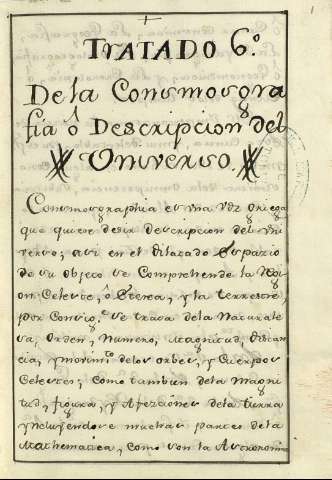 Tratado 6º.
De la Consmosgra
fia ô Descripcion del
Universo.
Consmographia es una voz Griega
que quiere desir descripcion del Uni
verso; asi en el dilatado Espazio
de su objeto se Comprehende la Rexi
on Celeste, ô Eterea, y la terrestre,
por Consigte. se trata dela Naturale
sa, Orden, Numero, Magnitud, distan
cia, y movimto. delos orbes, y Cuerpos
Celestes; como tambien dela Magni
tud, figura, y Afeziones dela tierra
yncluyendose muchas partes dela
Mathematica, como son la Astronomia